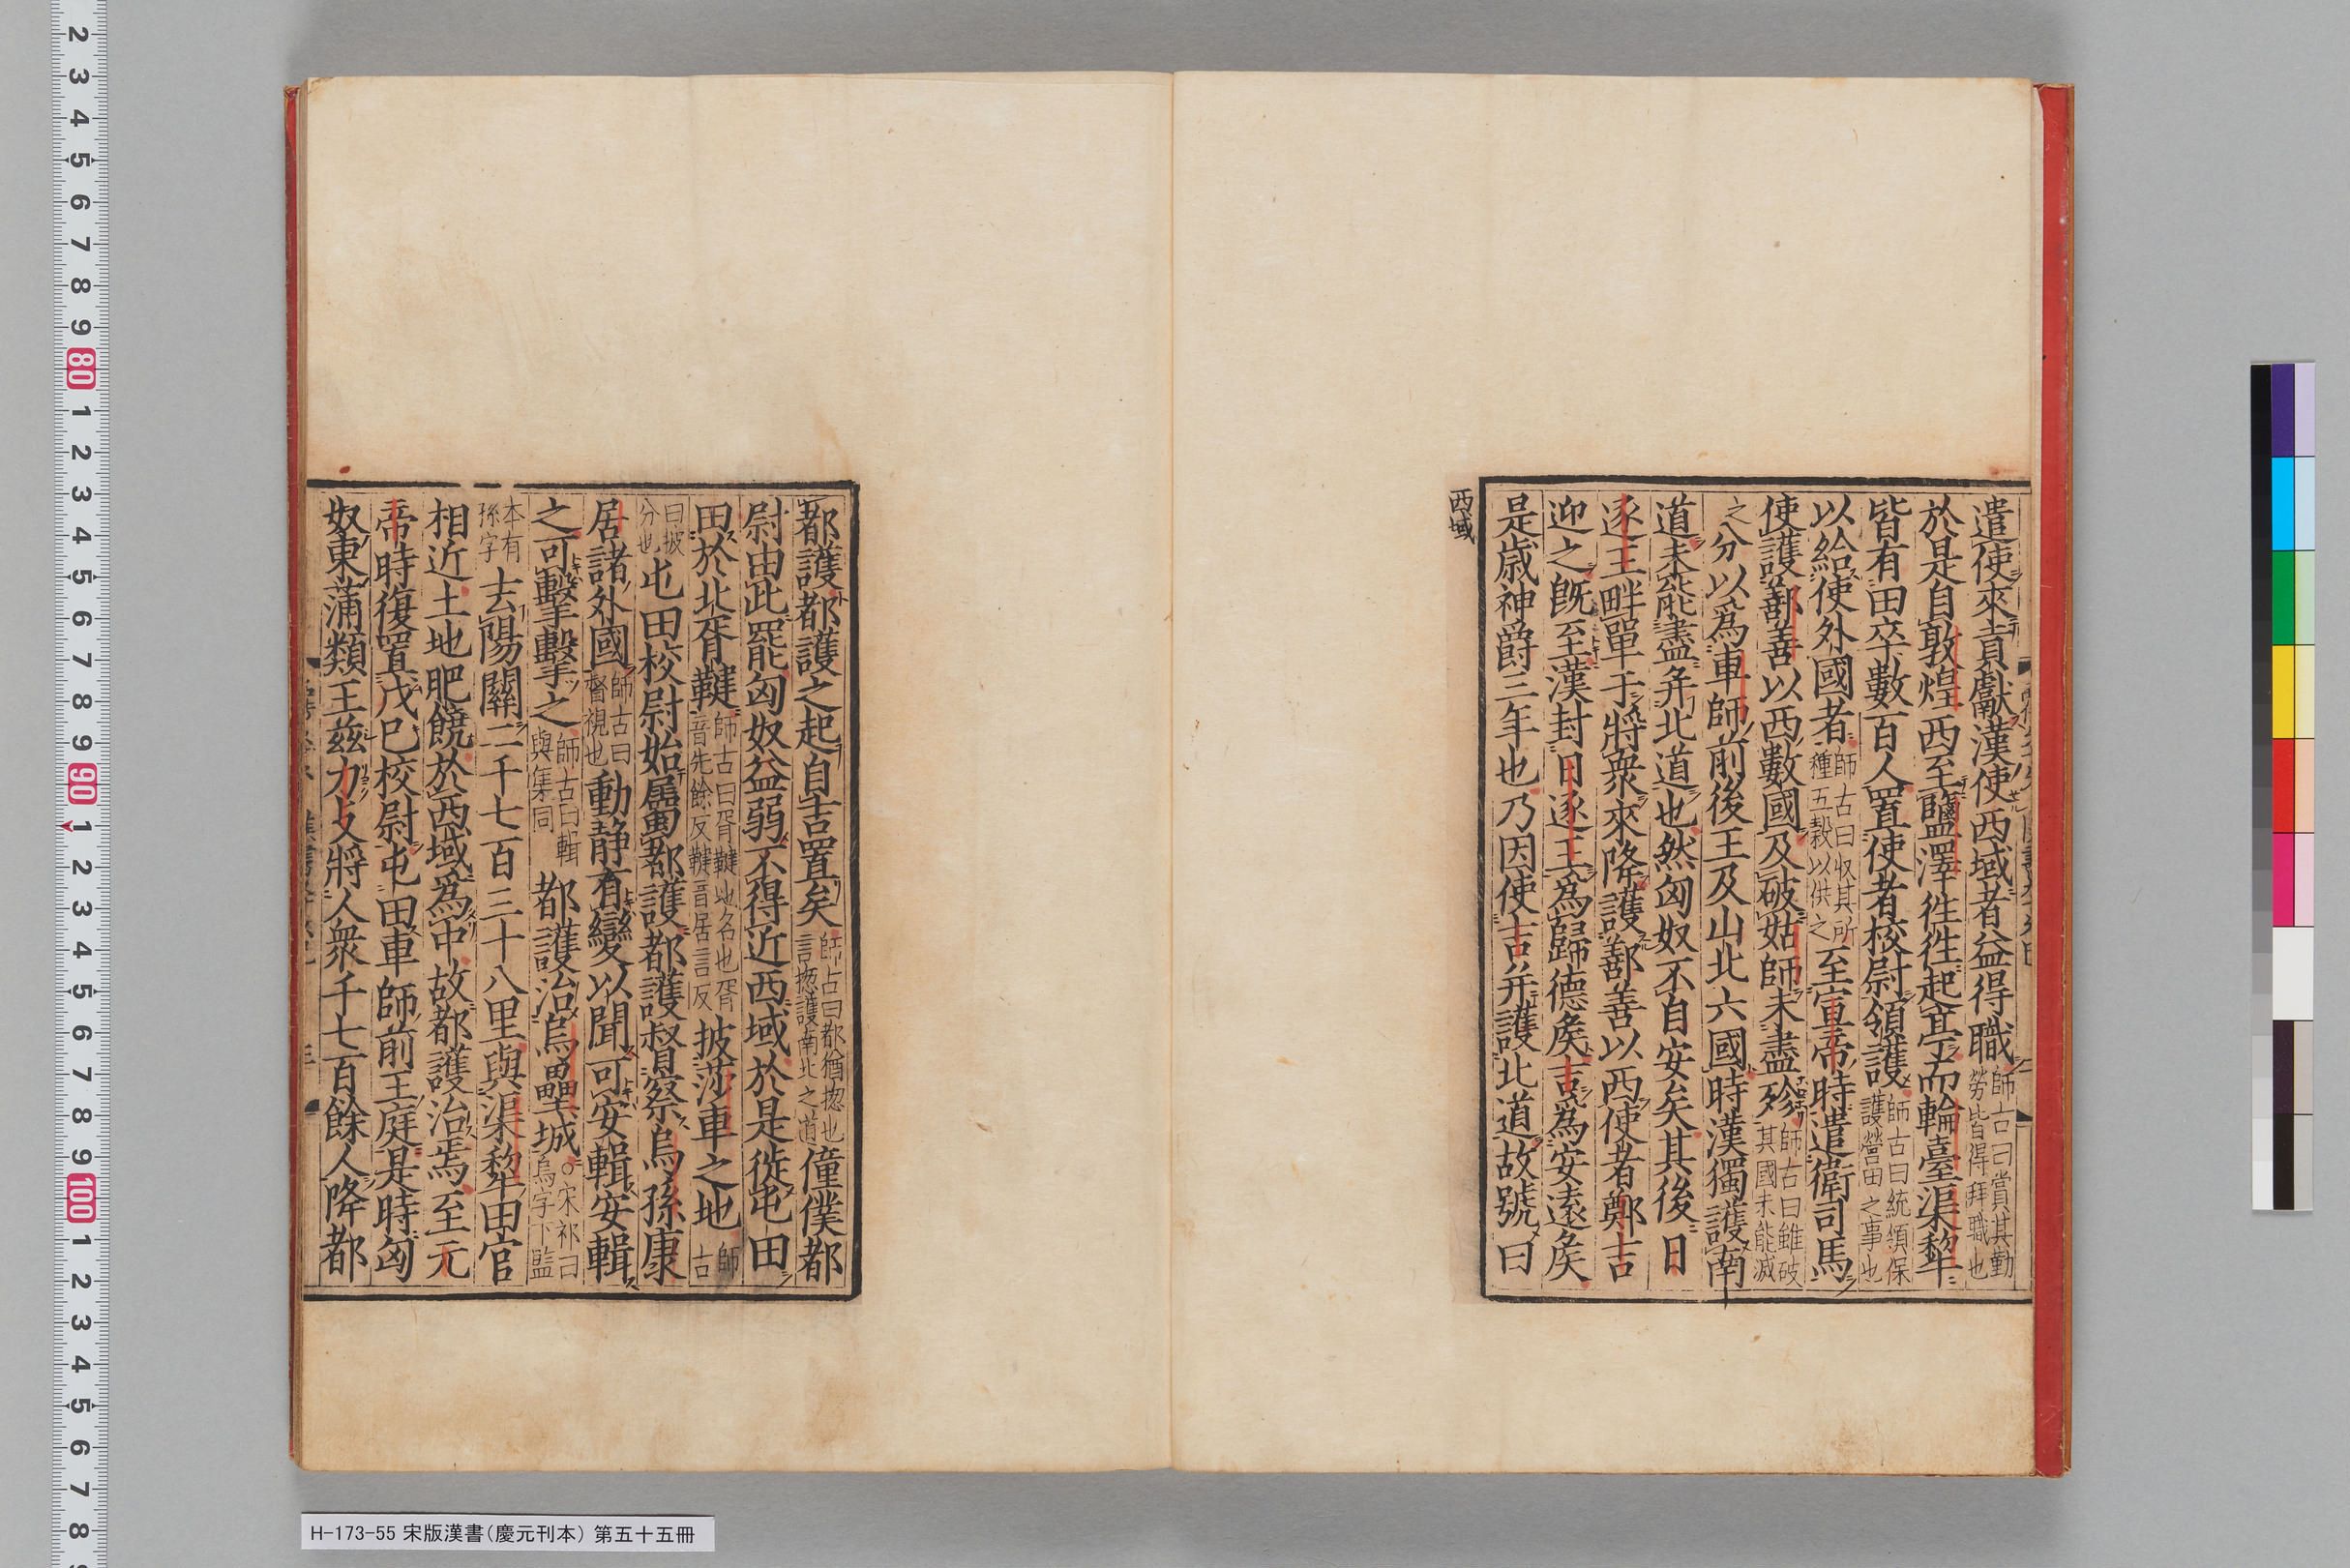 遣使來貢獻漢使西域者益得職師古曰賞其勤勞皆得拜職也
於是自敦煌西至鹽澤往往起亭而輪臺渠犂
皆有田卒數百人置使者校尉領護師古曰統領保護營田之事也
以給使外國者師古曰收其所種五穀以供之至宣帝時遣衛司馬
使護鄯善以西數國及破姑師未盡殄師古曰雖破其國未能滅
之分以爲車師前後王及山北六國時漢獨護南
道未能盡并北道也然匈奴不自安矣其後日
逐王畔單于將衆來降護鄯善以西使者鄭吉
迎之旣至漢封日逐王爲歸德矦吉爲安遠矦
是歲神爵三年也乃因使吉并護北道故號曰
西域
都護都護之起自吉置矣師古曰都猶揔也言揔護南北之道僮僕都
尉由此罷匈奴益弱不得近西域於是徙屯田
田於北胥鞬師古曰胥鞬地名也胥音先餘反鞬音居言反披莎車之地師古
曰披分也屯田校尉始屬都護都護督察烏孫康
居諸外國師古曰督視也動靜有變以聞可安輯安輯
之可擊擊之師古曰輯與集同都護治烏壘城○宋祁曰烏字下監
本有孫字去陽關二千七百三十八里與渠犂田官
相近土地肥饒於西域爲中故都護治焉至元
帝時復置戊巳校尉屯田車師前王庭是時匈
奴東蒲類王兹力支將人衆千七百餘人降都
H-173-55 宋版漢書(慶元刊本) 第五十五冊
2
3
4
5
6
7
8
9
80
1
2
3
4
5
6
7
8
9
90
1
2
3
4
5
6
7
8
9
100
1
2
3
4
5
6
7
8